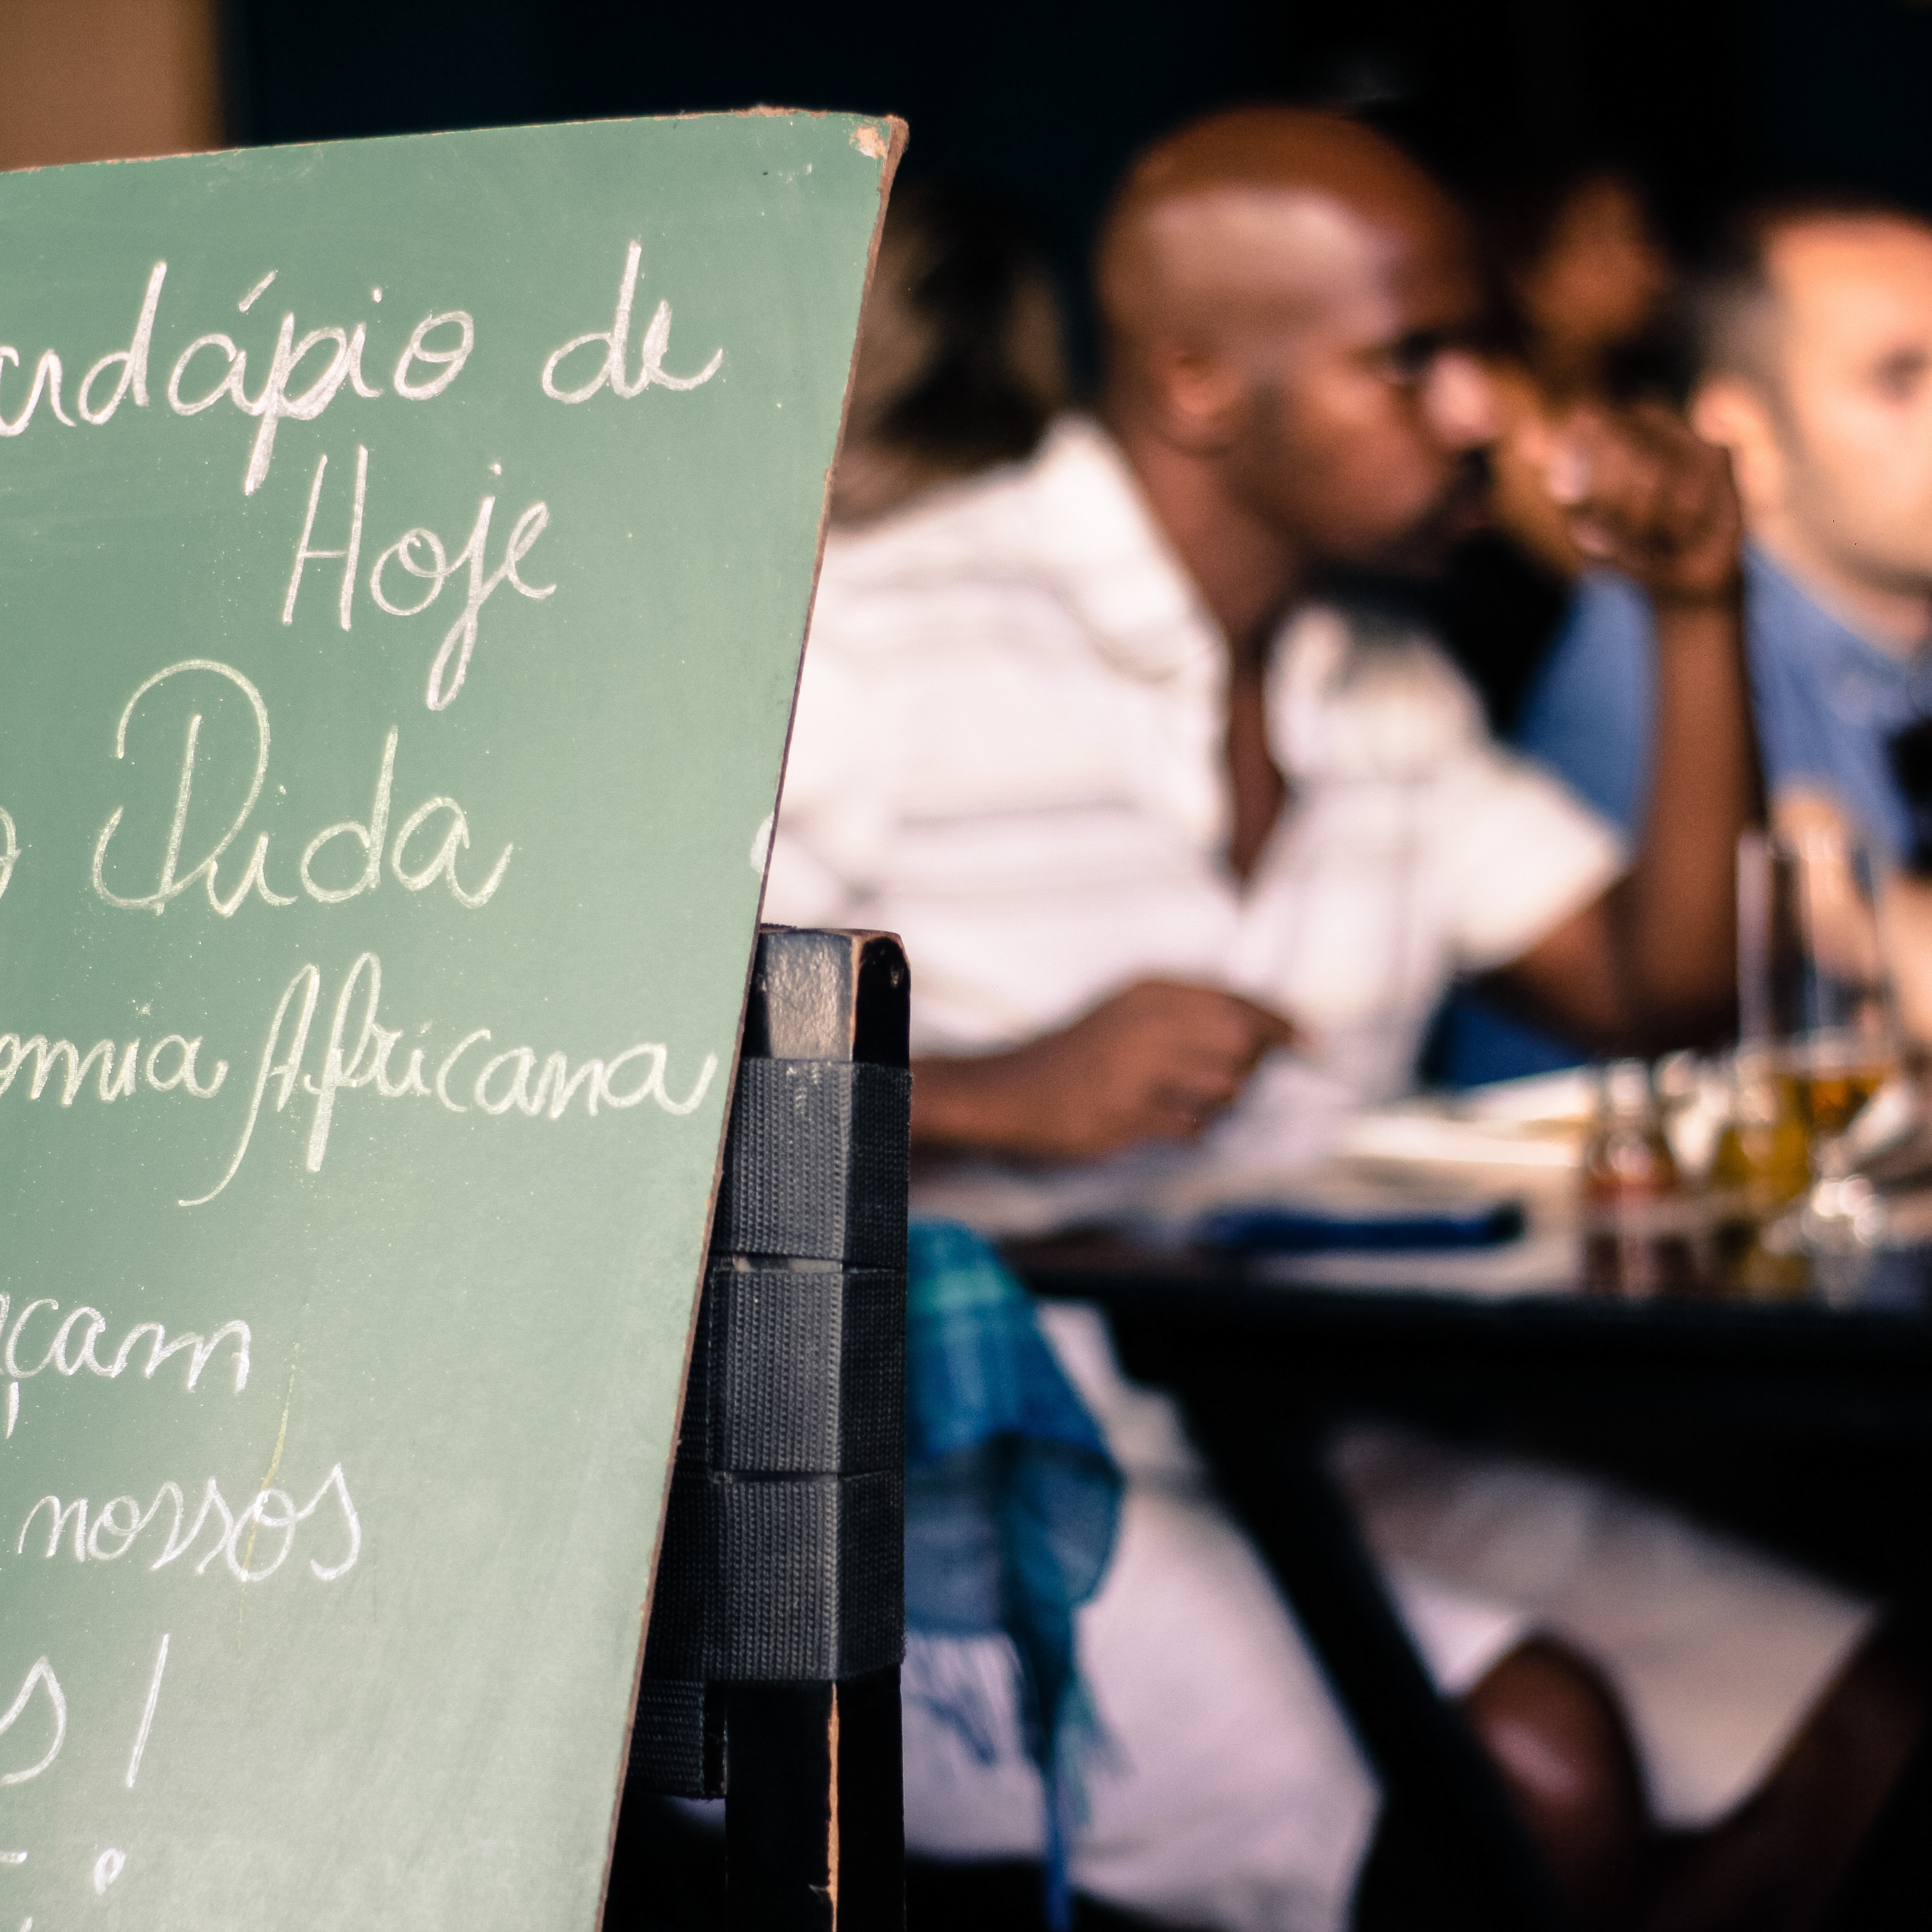 ardápio de
Hoje
Dida
omia Africana
açam
nossos
s!